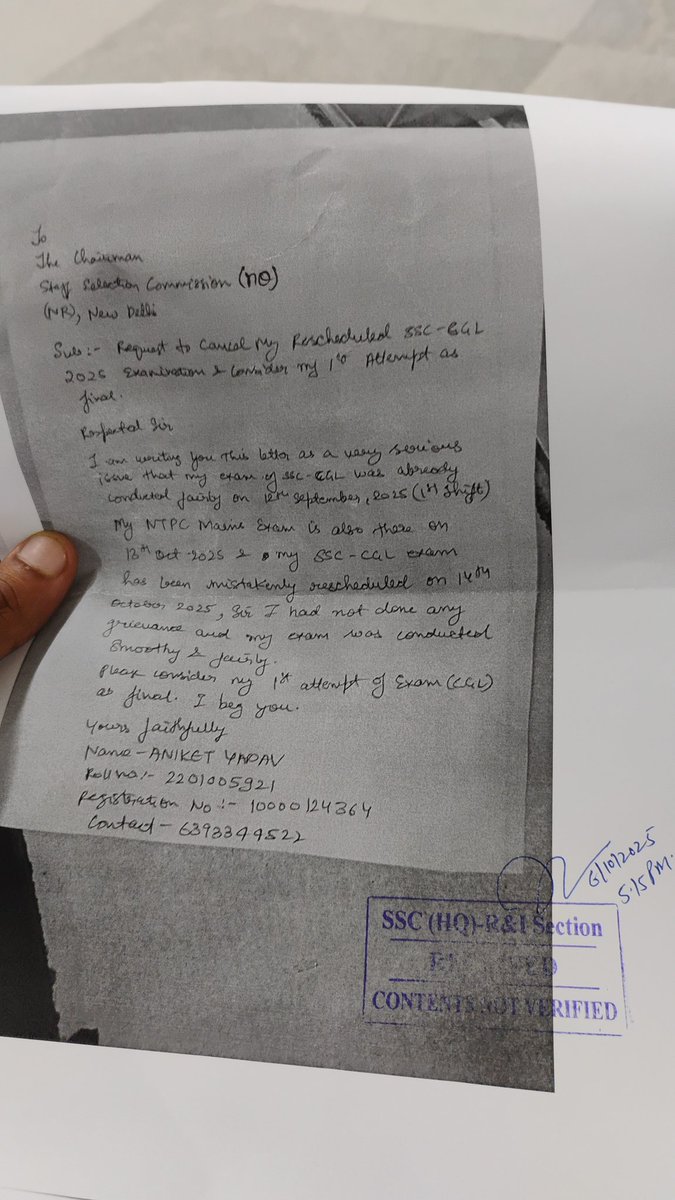 To
The Chairman
Staff Selection Commission (HQ)
(NR), New Delhi
Sub:- Request to Cancel My Rescheduled SSC-CGL
2025 Examination & Consider my 1st Attempt as
final.
Respected Sir
I am writing you this letter as a very serious
issue that my exam of SSC-CGL was already
conducted fairly on 12th September, 2025 (1st Shift)
My NTPC Mains Exam is also there on
13th Oct 2025 & my SSC-CGL exam
has been mistakenly rescheduled on 14th
October 2025, Sir I had not done any
grievance and my exam was conducted
Smoothy & fairly.
Please consider my 1st attempt of Exam (CGL)
as final. I beg you.
Yours faithfully
Name - ANIKET YADAV
Roll no:- 2201005921
Registration No :- 10000124364
Contact - 6393349522
6/10/2025
5:15 PM.
SSC (HQ)-R&I Section
RECEIVED
CONTENTS NOT VERIFIED